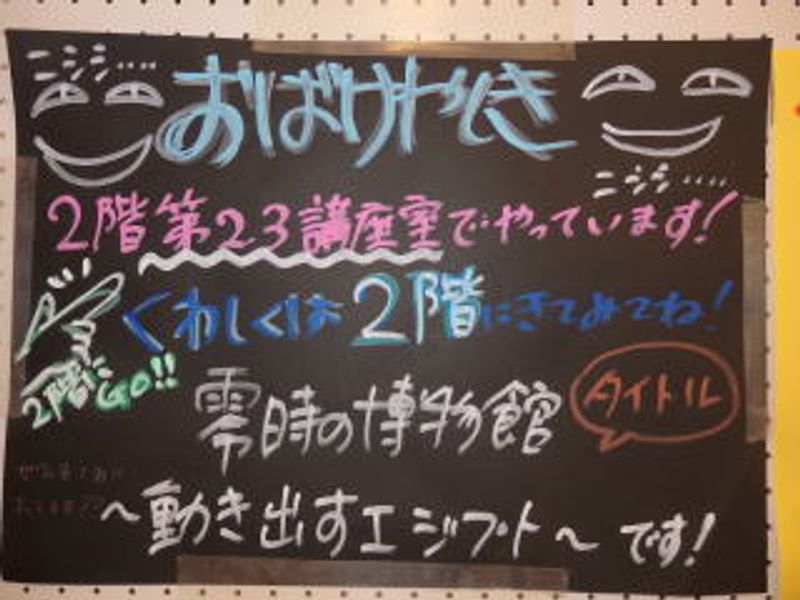 ニシシ....
おばけやしき
ニシシ....
2階第23講座室でやっています!
くわしくは2階にきてみてね!
2階にGO!!
零時の博物館
タイトル
~動き出すエジプト~です!